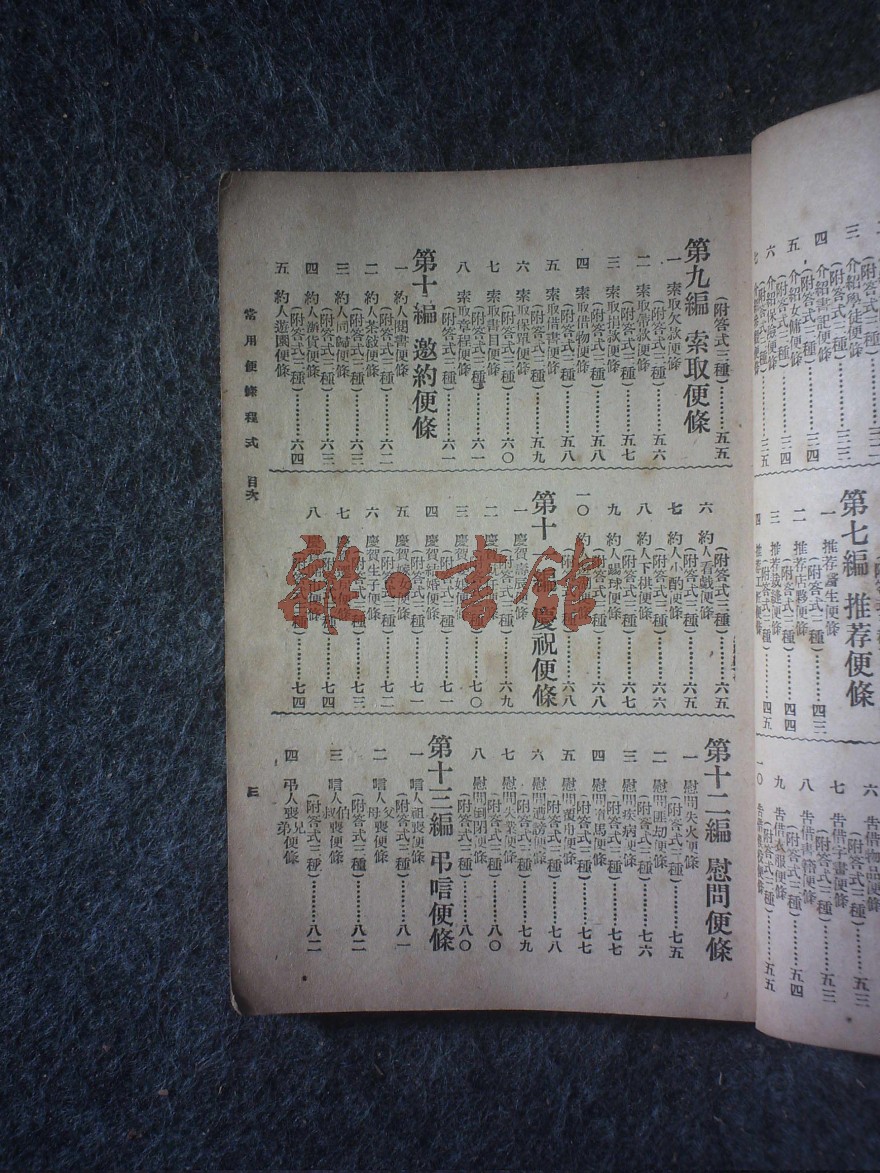 六
介紹女傭便條
五
(附答式三種)……三四
四
介紹書記便條
三
介紹學徒便條
第七編 推荐便條
一 推荐醫生便條
(附答式三種)……四三
二 推荐店夥便條
(附答式三種)……四四
三 推荐裁縫便條
(附答式三種)……四五
六 告借物品便條
(附答式三種)……五三
七 告借字畫便條
(附答式三種)……五三
八 告借書籍便條
(附答式三種)……五四
九 告借衣服便條
(附答式三種)……五五
一〇
(附答式三種)……五五
第九編 索取便條
一 索取欠款便條
(附答式三種)……五六
二 索取會款便條
(附答式三種)……五七
三 索取捐款便條
(附答式三種)……五八
四 索取借物便條
(附答式三種)……五八
五 索取借書便條
(附答式三種)……五九
六 索取保單便條
(附答式三種)……六〇
七 索取書目便條
(附答式三種)……六一
八 索取章程便條
(附答式三種)……六一
第十編 邀約便條
一 約人閱書便條
(附答式三種)……六二
二 約人茶敍便條
(附答式三種)……六三
三 約人同歸便條
(附答式三種)……六三
四 約人辦貨便條
(附答式三種)……六四
五 約人遊園便條
(附答式三種)……六五
六 約人看戲便條
(附答式三種)……六五
七 約人小酌便條
(附答式三種)……六六
八 約人下棋便條
(附答式三種)……六七
九 約人踢球便條
(附答式三種)……六八
一〇 約人
……六八
第十一編 慶祝便條
一 慶賀壽
……六九
二 慶
……七〇
三 慶賀
……七一
四 慶賀結婚便條
(附答式三種)……七一
五 慶賀嫁女便條
(附答式三種)……七二
六 慶賀生子便條
(附答式三種)……七三
七
……七四
八
……七四
第十二編 慰問便條
一 慰問失火便條
(附答式三種)……七五
二 慰問匪劫便條
(附答式三種)……七六
三 慰問疾病便條
(附答式三種)……七七
四 慰問墮馬便條
(附答式三種)……七七
五 慰問覆舟便條
(附答式三種)……七八
六 慰問遭謗便條
(附答式三種)……七九
七 慰問失業便條
(附答式三種)……八〇
八 慰問倒閉便條
(附答式三種)……八〇
第十三編 弔唁便條
一 唁人祖喪便條
(附答式三種)……八一
二 唁人父母喪便條
(附答式三種)……八二
三 唁人伯叔喪便條
(附答式三種)……八二
四 弔人兄弟喪便條
常用便條程式 目次
三
雜·書館